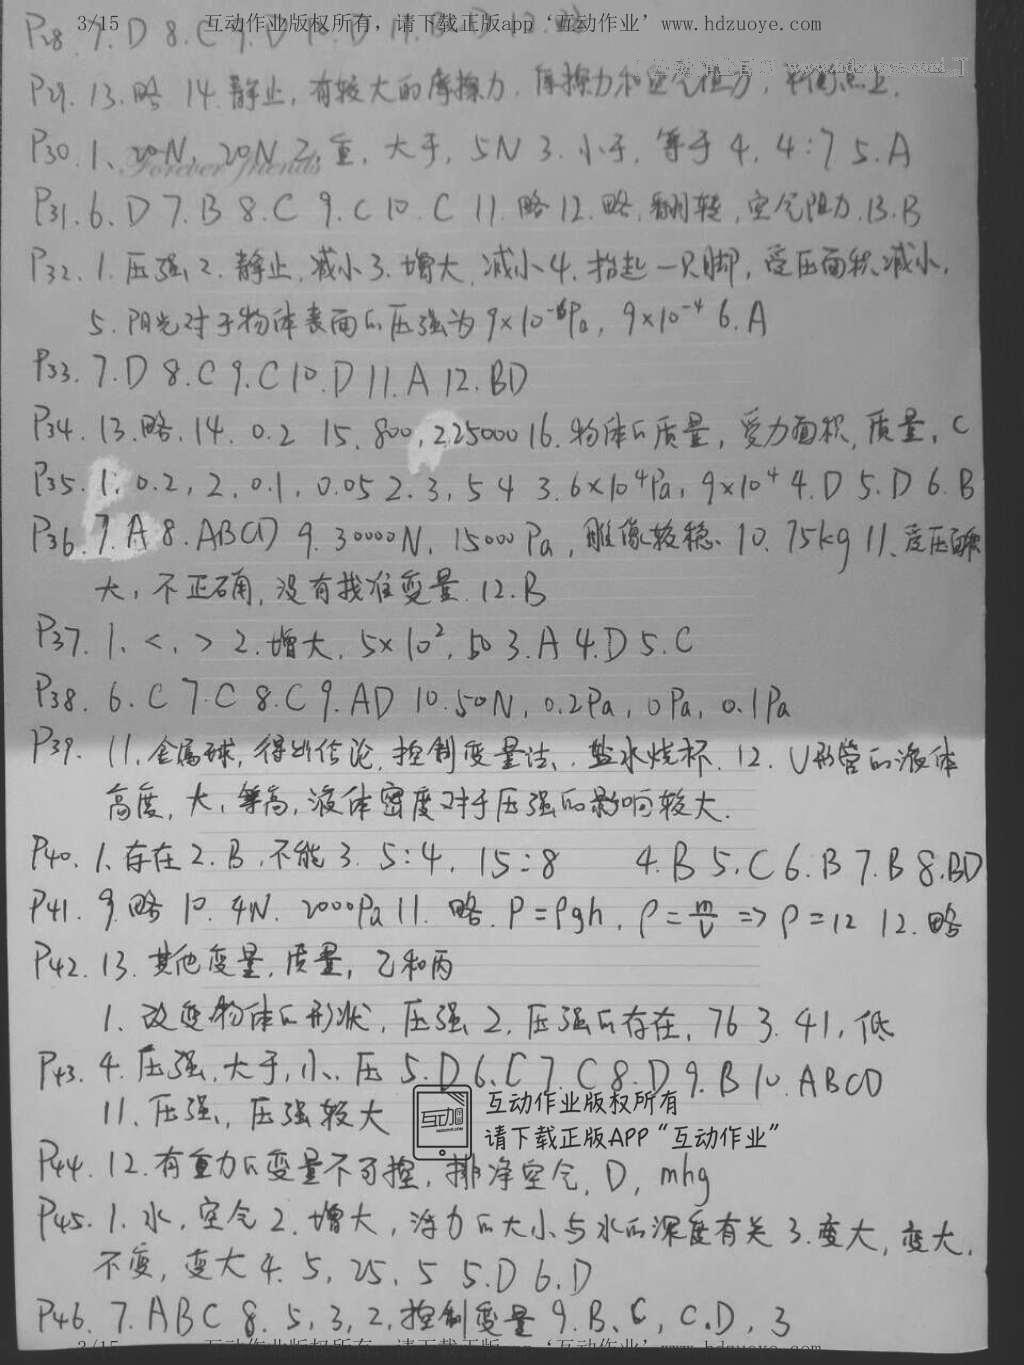 3/15 互动作业版权所有，请下载正版app‘互动作业’www.hdzuoye.com
P28. 7. D 8. C 9. D 10. D 11. B
P29. 13. 略 14. 静止，有较大的摩擦力，摩擦力和空气阻力，
P30. 1、20N，20N 2、重，大于，5N 3. 小于，等于 4. 4:7 5. A
Forever friends
P31. 6. D 7. B 8. C 9. C 10. C 11. 略 12. 略，翻转，空气阻力 13. B
P32. 1. 压强 2. 静止，减小 3. 增大，减小 4. 抬起一只脚，受压面积减小，
5. 阳光对于物体表面的压强为 9×10⁻⁶Pa，9×10⁻⁴ 6. A
P33. 7. D 8. C 9. C 10. D 11. A 12. BD
P34. 13. 略. 14. 0.2 15. 800，225000 16. 物体的质量，受力面积，质量，C
P35. 1. 0.2，2，0.1，0.05 2. 3，5 4 3. 6×10⁴Pa，9×10⁴ 4. D 5. D 6. B
P36. 7. A 8. ABCD 9. 30000N，15000Pa，雕像较稳、10. 75kg 11、受压面积
大，不正确，没有找准变量. 12. B
P37. 1、<，> 2. 增大，5×10²，50 3. A 4. D 5. C
P38. 6. C 7. C 8. C 9. AD 10. 50N，0.2Pa，0Pa，0.1Pa
P39. 11. 金属球，得出结论，控制变量法、盐水烧杯. 12. U形管的液体
高度，大，等高，液体密度对于压强的影响较大.
P40. 1、存在 2. B，不能 3. 5:4，15:8 4. B 5. C 6. B 7. B 8. BD
P41. 9. 略 10. 4N. 2000Pa 11. 略. P=ρgh，ρ=m/V => ρ=12 12. 略
P42. 13. 其他变量，质量，乙和丙
1、改变物体的形状，压强 2. 压强的存在，76 3. 41，低
P43. 4. 压强，大于，小、压 5. D 6. C 7. C 8. D 9. B 10. ABCD
11. 压强，压强较大
互动
互动作业版权所有
请下载正版APP“互动作业”
P44. 12. 有重力的变量不可控，排净空气，D，mhg
P45. 1. 水，空气 2. 增大，浮力的大小与水的深度有关 3. 变大，变大，
不变，变大 4. 5，25，5 5. D 6. D
P46. 7. ABC 8. 5，3，2，控制变量 9. B、C，C、D，3
3/15 互动作业版权所有，请下载正版app‘互动作业’www.hdzuoye.com